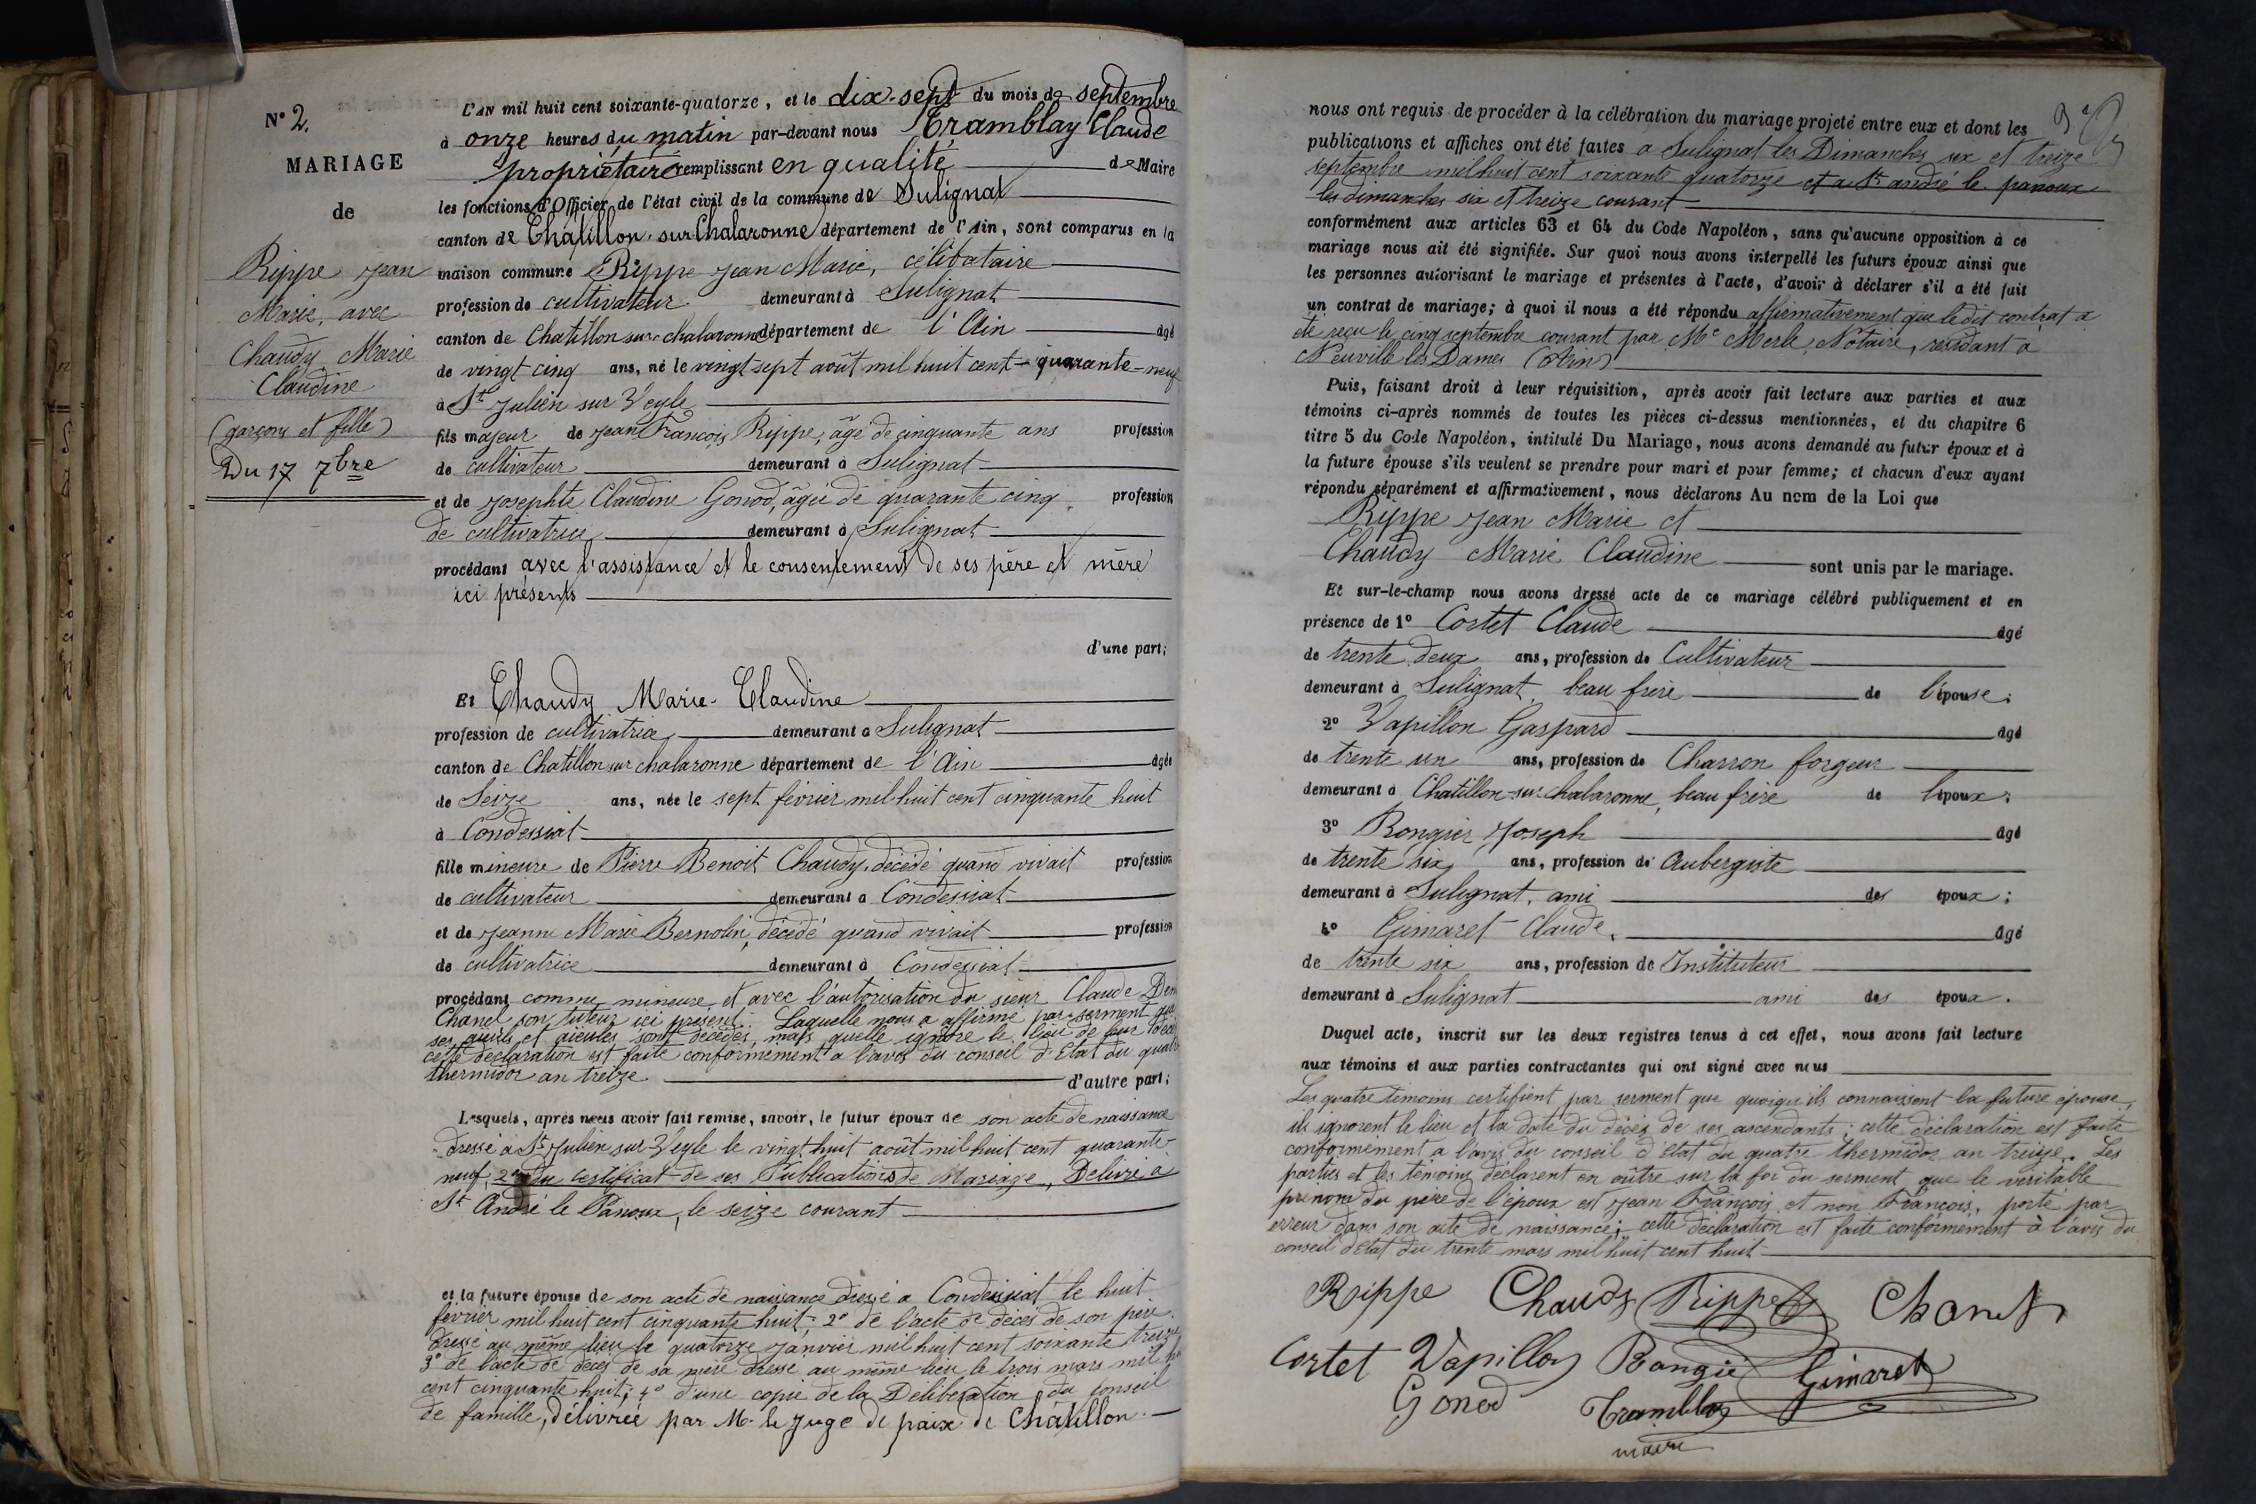 N° 2.
MARIAGE
de
Rippe Jean
Marie, avec
Chaudy Marie
Claudine
(garçons et fille)
Du 17 7bre
L'AN mil huit cent soixante-quatorze, et le dix-sept du mois de septembre
à onze heures du matin par-devant nous Tramblay Claude
propriétaire remplissant en qualité de Maire
les fonctions d'Officier de l'état civil de la commune de Sulignat
canton de Châtillon-sur-Chalaronne département de l'Ain, sont comparus en la
maison commune Rippe Jean Marie, célibataire
profession de cultivateur demeurant à Sulignat
canton de Chatillon sur chalaronne département de l'Ain âgé
de vingt cinq ans, né le vingt-sept août mil huit cent quarante-neuf
à St Julien sur Veyle
fils majeur de Jean François Rippe, âgé de cinquante ans profession
de cultivateur demeurant à Sulignat
et de Josephte Claudine Gonod, âgée de quarante cinq, profession
de cultivatrice demeurant à Sulignat
procédant avec l'assistance et le consentement de ses père et mère
ici présents
d'une part;
Et Chaudy Marie-Claudine
profession de cultivatrice demeurant a Sulignat
canton de Chatillon sur chalaronne département de l'Ain âgée
de Seize ans, née le sept février mil huit cent cinquante huit
à Condessiat
fille mineure de Pierre Benoit Chaudy, décédé quand vivait profession
de cultivateur demeurant a Condessiat
et de Jeanne Marie Bernolin, décédé quand vivait profession
de cultivatrice demeurant à Condessiat
procédant comme mineure et avec l'autorisation du sieur Claude
Chanel son tuteur ici présent. Laquelle nous a affirmé par serment que
ses aieuls et aieules sont décédés, mais quelle ignore le lieu de leur
cette déclaration est faite conformément a l'avis du conseil d'Etat du quatre
thermidor an treize d'autre part;
Lesquels, après nous avoir fait remise, savoir, le futur époux de son acte de naissance
dressé a St Julien sur Veyle le vingt huit août mil huit cent quarante-
neuf, 2° du certificat de ses Publications de Mariage, Délivré a
St André le Panoux, le seize courant
et la future épouse de son acte de naissance dressé a Condessiat le huit
février mil huit cent cinquante huit; 2° de l'acte de décès de son père
dressé au même lieu le quatorze janvier mil huit cent soixante treize
3° de l'acte de décès de sa mère dressé au même lieu le trois mars mil
cent cinquante huit; 4° d'une copie de la Délibération du Conseil
de famille, délivrée par Mr le Juge de paix de Châtillon.
nous ont requis de procéder à la célébration du mariage projeté entre eux et dont les
publications et affiches ont été faites a Sulignat les Dimanches six et treize
septembre mil huit cent soixante quatorze et a St andré le panoux
les dimanches six et treize courant
conformément aux articles 63 et 64 du Code Napoléon, sans qu'aucune opposition à ce
mariage nous ait été signifiée. Sur quoi nous avons interpellé les futurs époux ainsi que
les personnes autorisant le mariage et présentes à l'acte, d'avoir à déclarer s'il a été fait
un contrat de mariage; à quoi il nous a été répondu affirmativement que le dit contrat a
été reçu le cinq septembre courant par Me Merle, Notaire, résidant a
Neuville les Dames (Ain)
Puis, faisant droit à leur réquisition, après avoir fait lecture aux parties et aux
témoins ci-après nommés de toutes les pièces ci-dessus mentionnées, et du chapitre 6
titre 5 du Code Napoléon, intitulé Du Mariage, nous avons demandé au futur époux et à
la future épouse s'ils veulent se prendre pour mari et pour femme; et chacun d'eux ayant
répondu séparément et affirmativement, nous déclarons Au nom de la Loi que
Rippe Jean Marie et
Chaudy Marie Claudine sont unis par le mariage.
Et sur-le-champ nous avons dressé acte de ce mariage célébré publiquement et en
présence de 1° Cortet Claude âgé
de trente deux ans, profession de Cultivateur
demeurant à Sulignat, beau frère de l'épouse;
2° Vapillon Gaspard âgé
de trente un ans, profession de Charron forgeur
demeurant à Chatillon-sur-chalaronne, beau frère de l'époux;
3° Rongier Joseph âgé
de trente six ans, profession de Aubergiste
demeurant à Sulignat, ami des époux;
4° Gimaret Claude, âgé
de trente six ans, profession de Instituteur
demeurant à Sulignat ami des époux.
Duquel acte, inscrit sur les deux registres tenus à cet effet, nous avons fait lecture
aux témoins et aux parties contractantes qui ont signé avec nous
Les quatre témoins certifient par serment que quoiqu'ils connaissent la future épouse,
ils ignorent le lieu et la date du décès de ses ascendants; cette déclaration est faite
conformément a l'avis du conseil d'Etat du quatre thermidor an treize. Les
parties et les témoins déclarent en outre sur la foi du serment que le véritable
prenom du père de l'époux est Jean François et non François, porté par
erreur dans son acte de naissance; cette déclaration est faite conformément à l'avis du
conseil d'Etat du trente mars mil huit cent huit
Rippe Chaudy Rippe Chanel
Cortet Vapillon Rongié Gimaret
Gonod Tramblay
maire